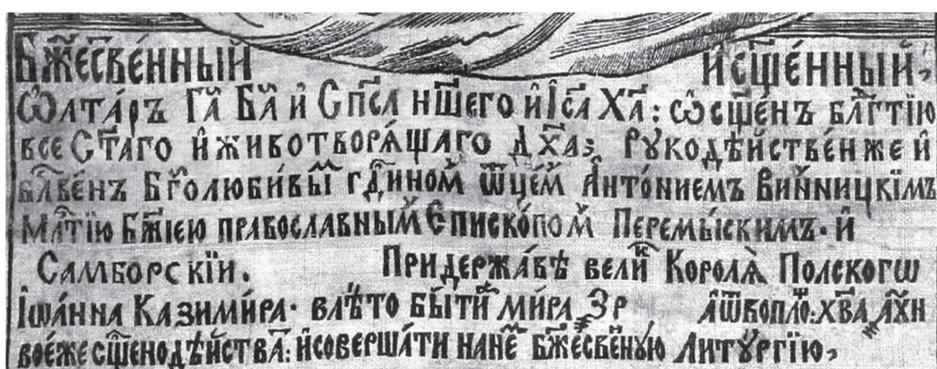 Бж҃е́свⷭ҇е́нный и҆ сщ҃е́нный,
Ѡ҆лтарь Га҃ Ба҃ и҆ Сп҃са нш҃его і҆Іса Ха҃: ѡ҆сщ҃енъ бл҃гтїю
все Ст҃аго и҆ животворѧ́щаго дх҃а; Рꙋкодѣ́йственже и҆
бл҃ве́нъ Бг҃олюби́вы гдⷭ҇иномъ ѿце́мъ А҆нто́ниемъ Ви́нницкімъ
Млⷭ҇тїю Бж҃їею православнымъ Єписко́помъ Перемы́скимъ. и҆
Самборскїи. При державѣ вели Королѧ̀ Полскогѡ
І҆ѡа́нна Казими́ра. влѣ́то бытїѧ̀ ми́ра ҂Зр А҆ ѿ вопло: хв҃а ҂а҃хн
воеже сщ҃енодѣ́йства: и҆ соверша́ти на не бж҃е́свенꙋю Литꙋргі́ю,